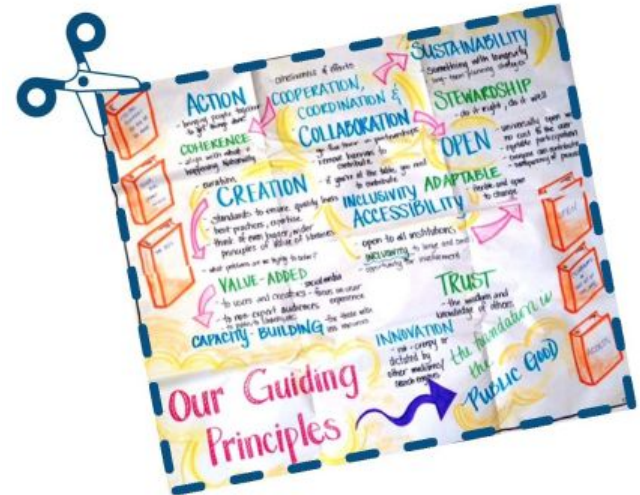 ACTION
- bringing people together
to get things done!
COHERENCE
- align with what is
happening nationally
- curation
CREATION
- standards to ensure quality
- best practices, expertise
- think of even bigger, wider
principles of value of libraries
- what problems are we trying to solve?
VALUE-ADDED
- to users and creators - focus on user
- to non-expert audiences experience
CAPACITY-BUILDING
- cohesiveness of efforts
COOPERATION,
COORDINATION &
COLLABORATION
partnerships
- remove barriers to
contribute
- if you're at the table, you need
to contribute
INCLUSIVITY
ACCESSIBILITY
open to all institutions
INCLUSIVITY to large and small
opportunity for involvement
INNOVATION
- not creepy or
dictated by
other
search engines
SUSTAINABILITY
- something with longevity
- long-term planning strategies
STEWARDSHIP
- do it right, do it well
OPEN
- universally open
no cost to the user
- equitable participation
everyone can contribute
transparency of
ADAPTABLE
- flexible and open
to change
TRUST
- the wisdom and
knowledge of others
the foundation is
the
PUBLIC GOOD
Our Guiding
Principles
OPEN
ACCESS